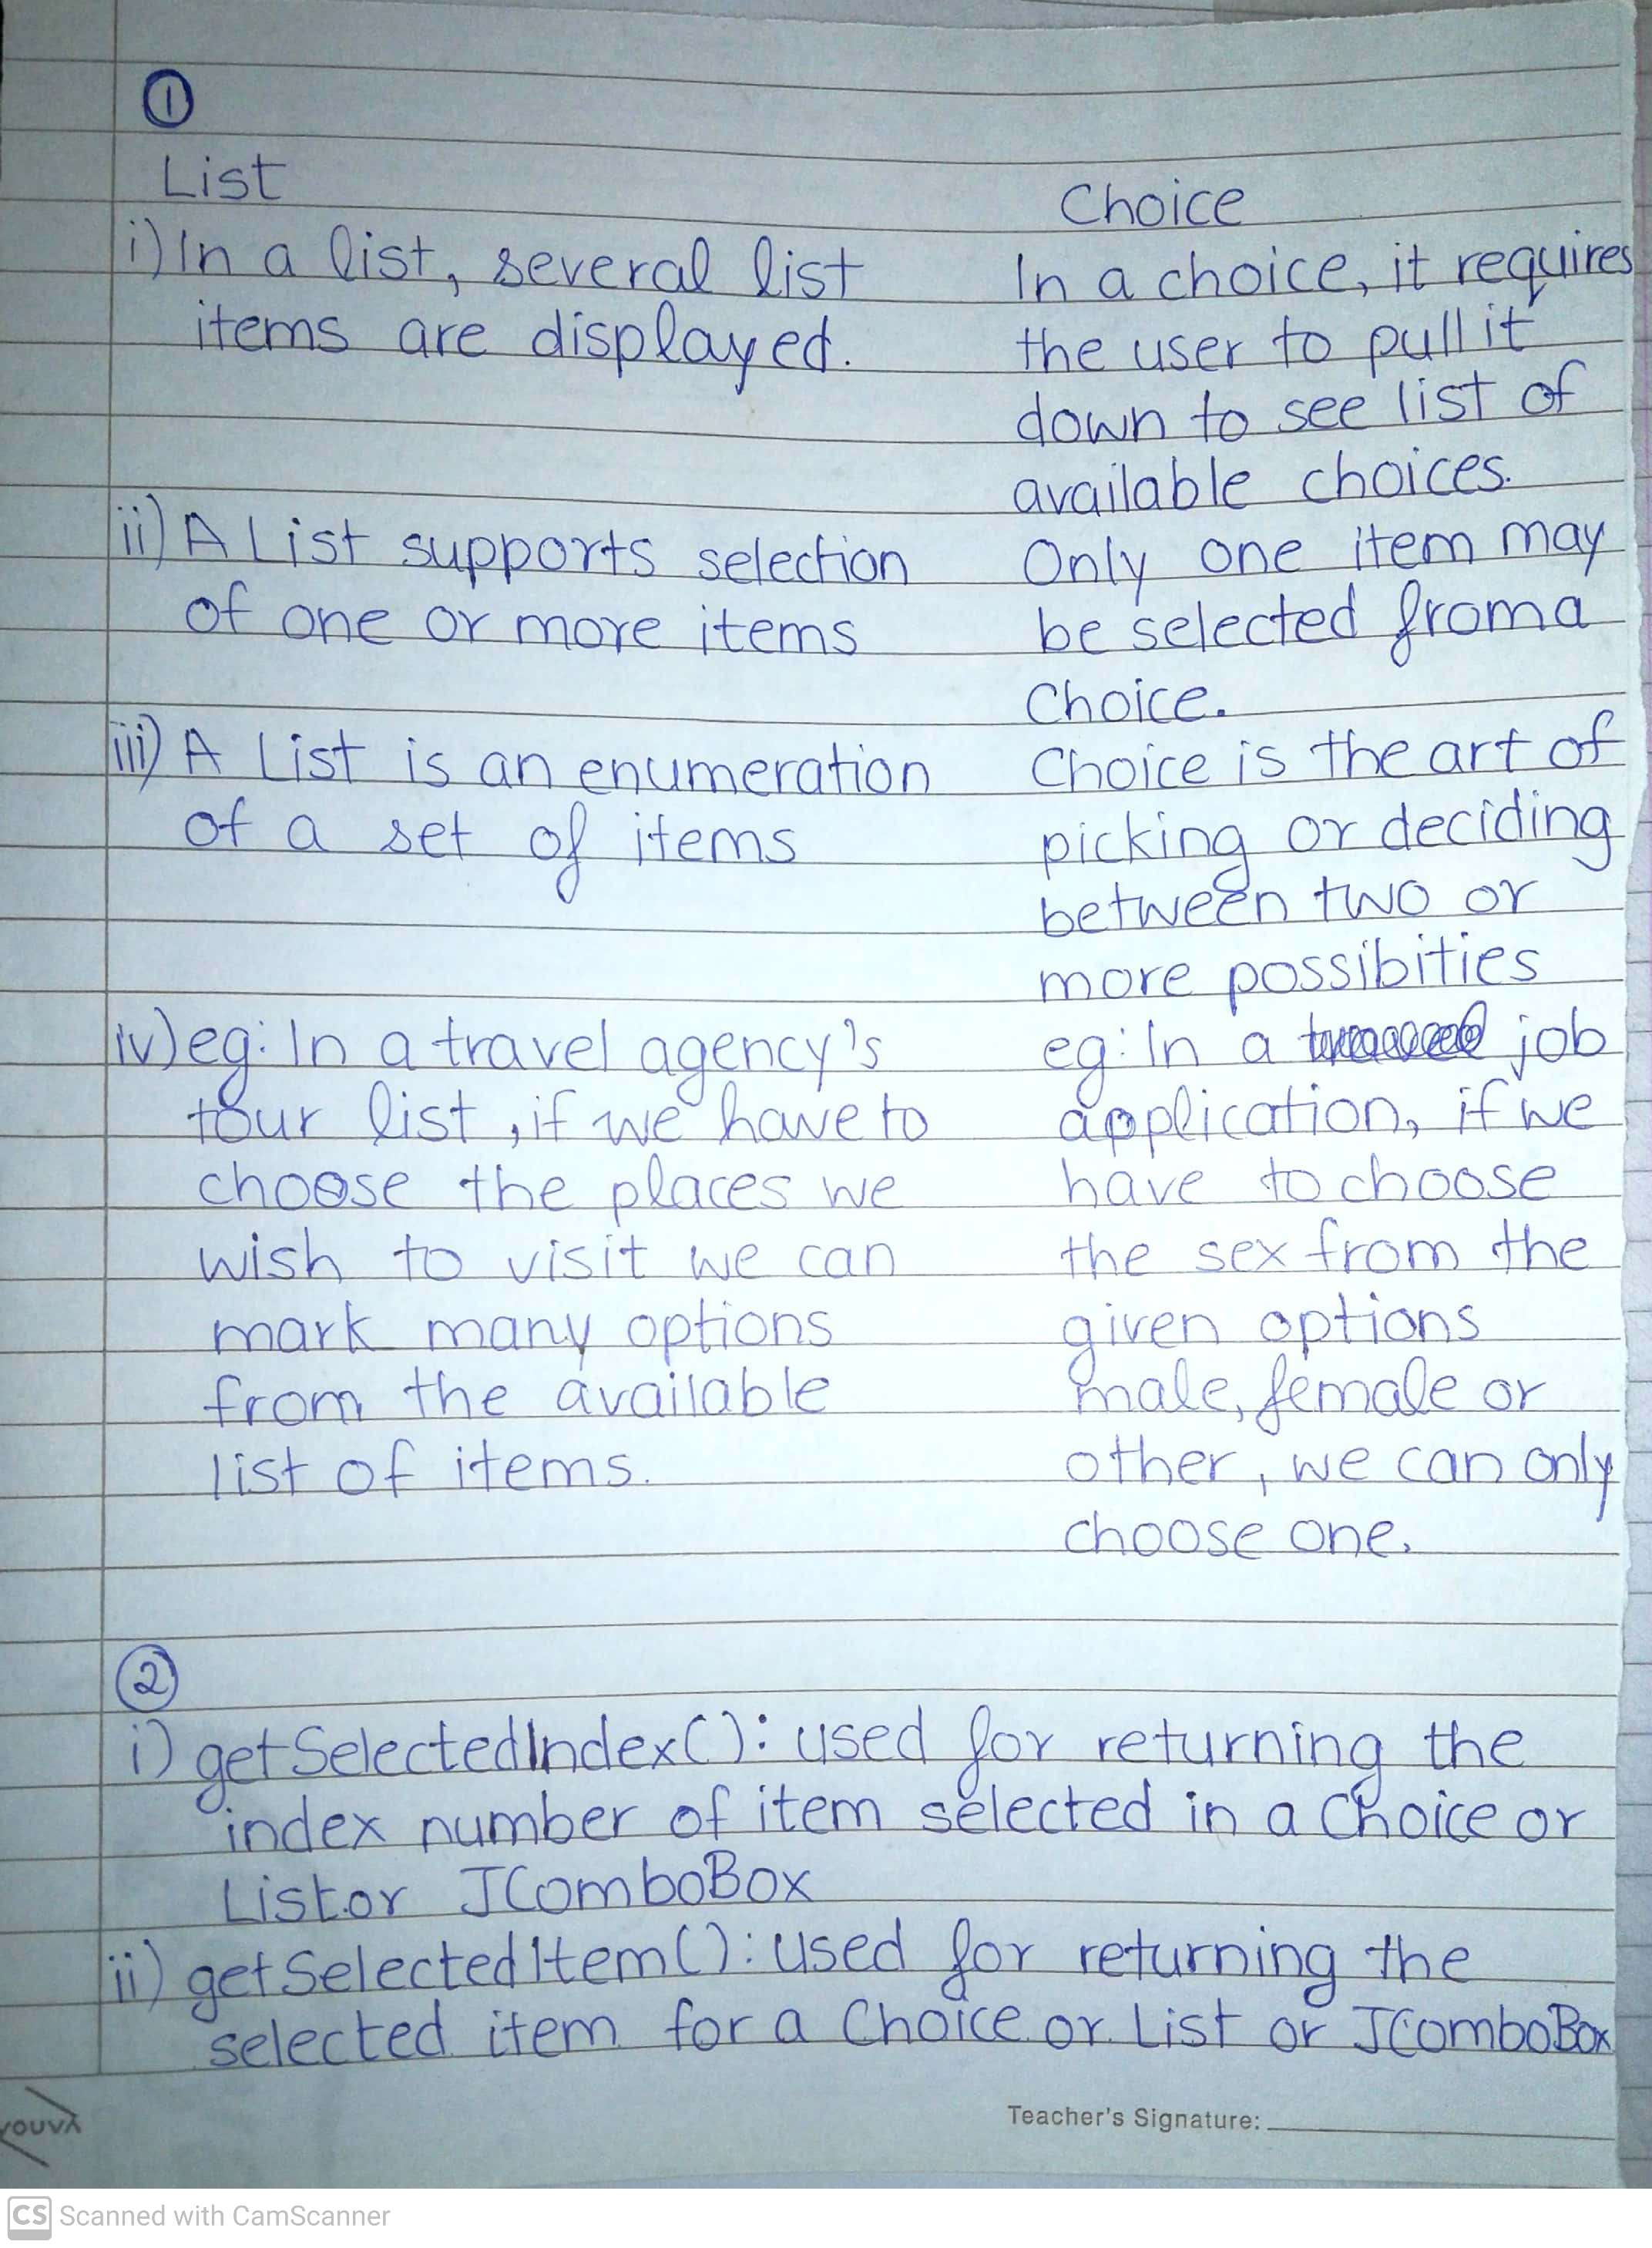 1
List
Choice
i) In a list, several list
items are displayed.
In a choice, it requires
the user to pull it
down to see list of
available choices.
ii) A List supports selection
of one or more items
Only one item may
be selected from a
Choice.
iii) A List is an enumeration
of a set of items
Choice is the art of
picking or deciding
between two or
more possibities
iv) eg: In a travel agency's
tour list, if we have to
choose the places we
wish to visit we can
mark many options
from the available
list of items.
eg: In a job
application, if we
have to choose
the sex from the
given options
male, female or
other, we can only
choose one.
2
i) getSelectedIndex(): used for returning the
index number of item selected in a Choice or
List or JComboBox
ii) getSelectedItem(): used for returning the
selected item for a Choice or List or JComboBox
Teacher's Signature:
youva
CS Scanned with CamScanner